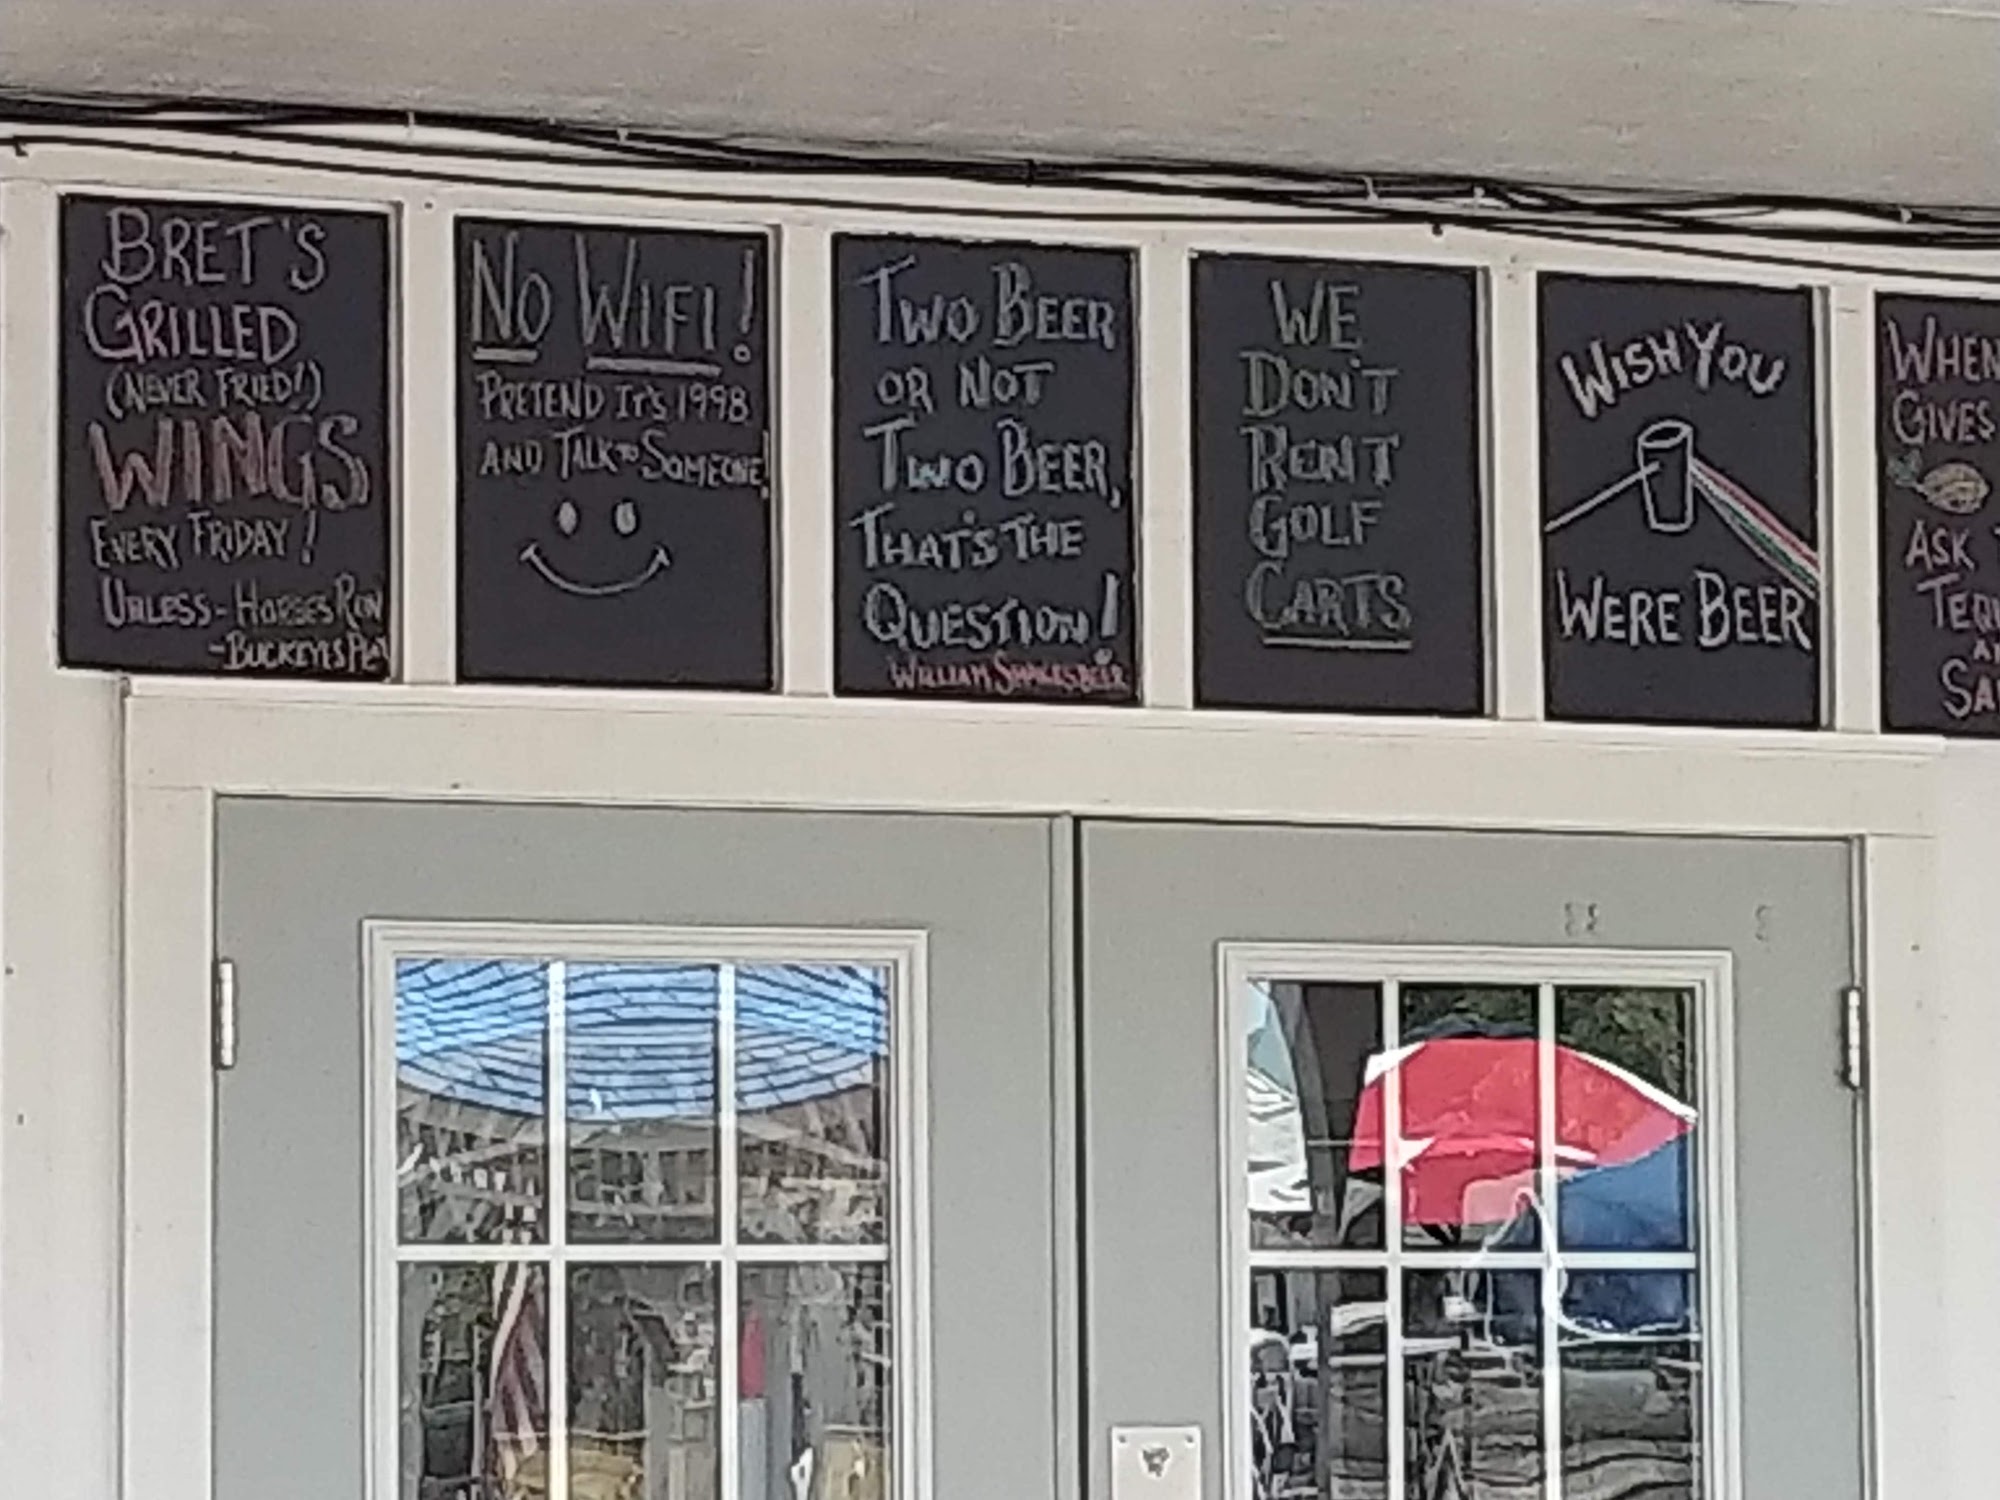 BRET'S
GRILLED
(NEVER FRIED!)
WINGS
EVERY FRIDAY!
UNLESS - HORSES RUN
- BUCKEYES PLAY
NO WIFI!
PRETEND IT'S 1998
AND TALK TO SOMEONE!
TWO BEER
OR NOT
TWO BEER,
THAT'S THE
QUESTION!
WILLIAM SHAKESBEER
WE
DON'T
RENT
GOLF
CARTS
WISH YOU
WERE BEER
WHEN
GIVES
ASK